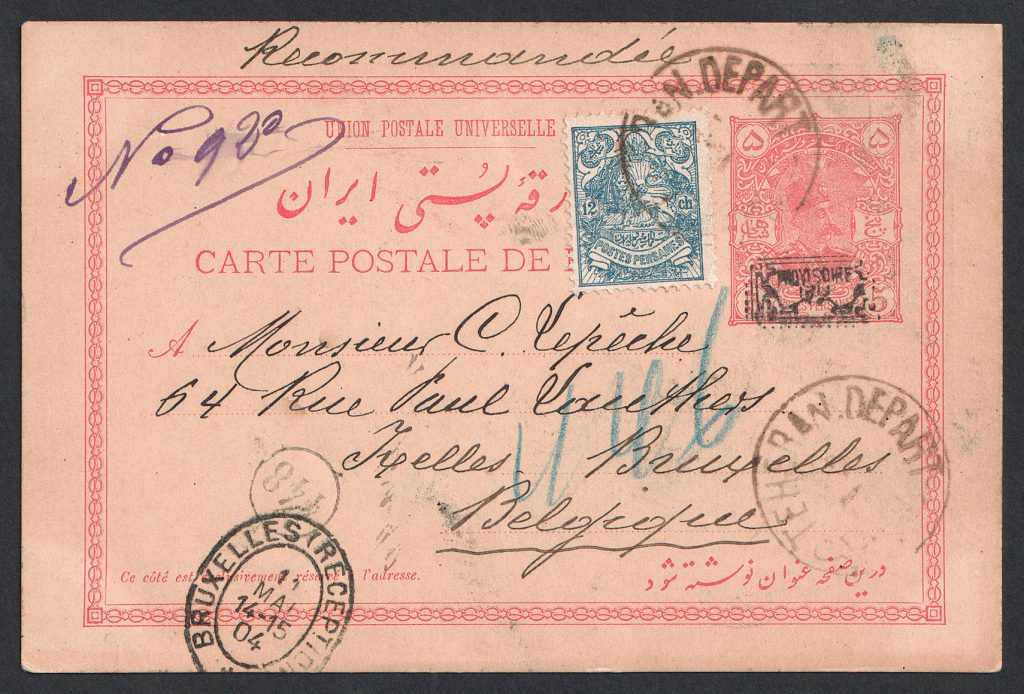 Recommandée
No 932
UNION POSTALE UNIVERSELLE
ورقهٔ پستی ایران
CARTE POSTALE DE
A Monsieur C. Lepêche
64 Rue Paul Lauters
Ixelles Bruxelles
Belgique
Ce côté est exclusivement réservé à l'adresse.
درین صفحه عنوان نوشته شود
12 ch
POSTES PERSANES
۵ ۵
5
PROVISOIRE
TEHERAN. DEPART
TEHERAN. DEPART
148
BRUXELLES (RECEPTION
11
MAI
14-15
04